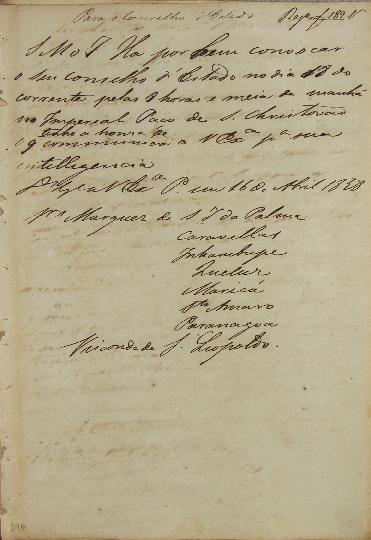 Para o Conselho d'Estado Reg. f. 189 V
S. M. o I. Ha por bem convocar
o seu Conselho d'Estado no dia 18 do
corrente pelas 8 horas e meia da manhã
no Imperial Paço de S. Christovão
tenho a honra de
o q communica a V Exª pª sua
intelligencia
Ds. Gde a V Exª P. em 16 de Abril 1828
Marquez de S. J. da Palma
Caravellas
Inhambupe
Queluz
Maricá
Sto Amaro
Paranagoa
Visconde de S. Leopoldo.
198